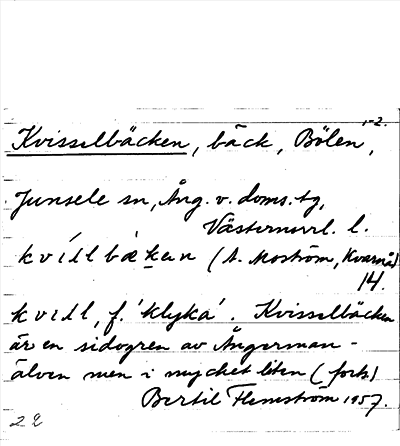 1-2.
Kvisselbäcken, bäck, Bölen,
Junsele sn, Ång. v. doms. tg,
Västernorrl. l.
kvillbækan (A. Moström, Kvarnå)
14.
kvill, f. 'klyka'. Kvisselbäcken
är en sidogren av Ångerman-
älven men i mycket liten (forts)
Bertil Flemström 1957.
22